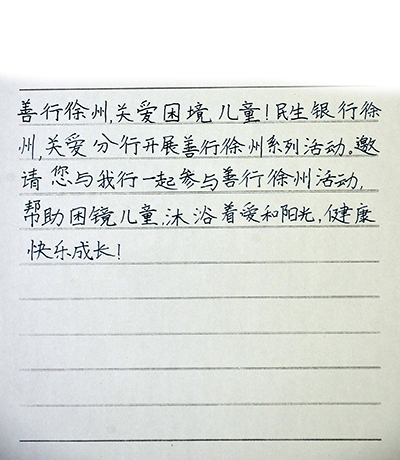 善行徐州,关爱困境儿童!民生银行徐
州,关爱分行开展善行徐州系列活动。邀
请您与我行一起参与善行徐州活动,
帮助困镜儿童,沐浴着爱和阳光,健康
快乐成长!